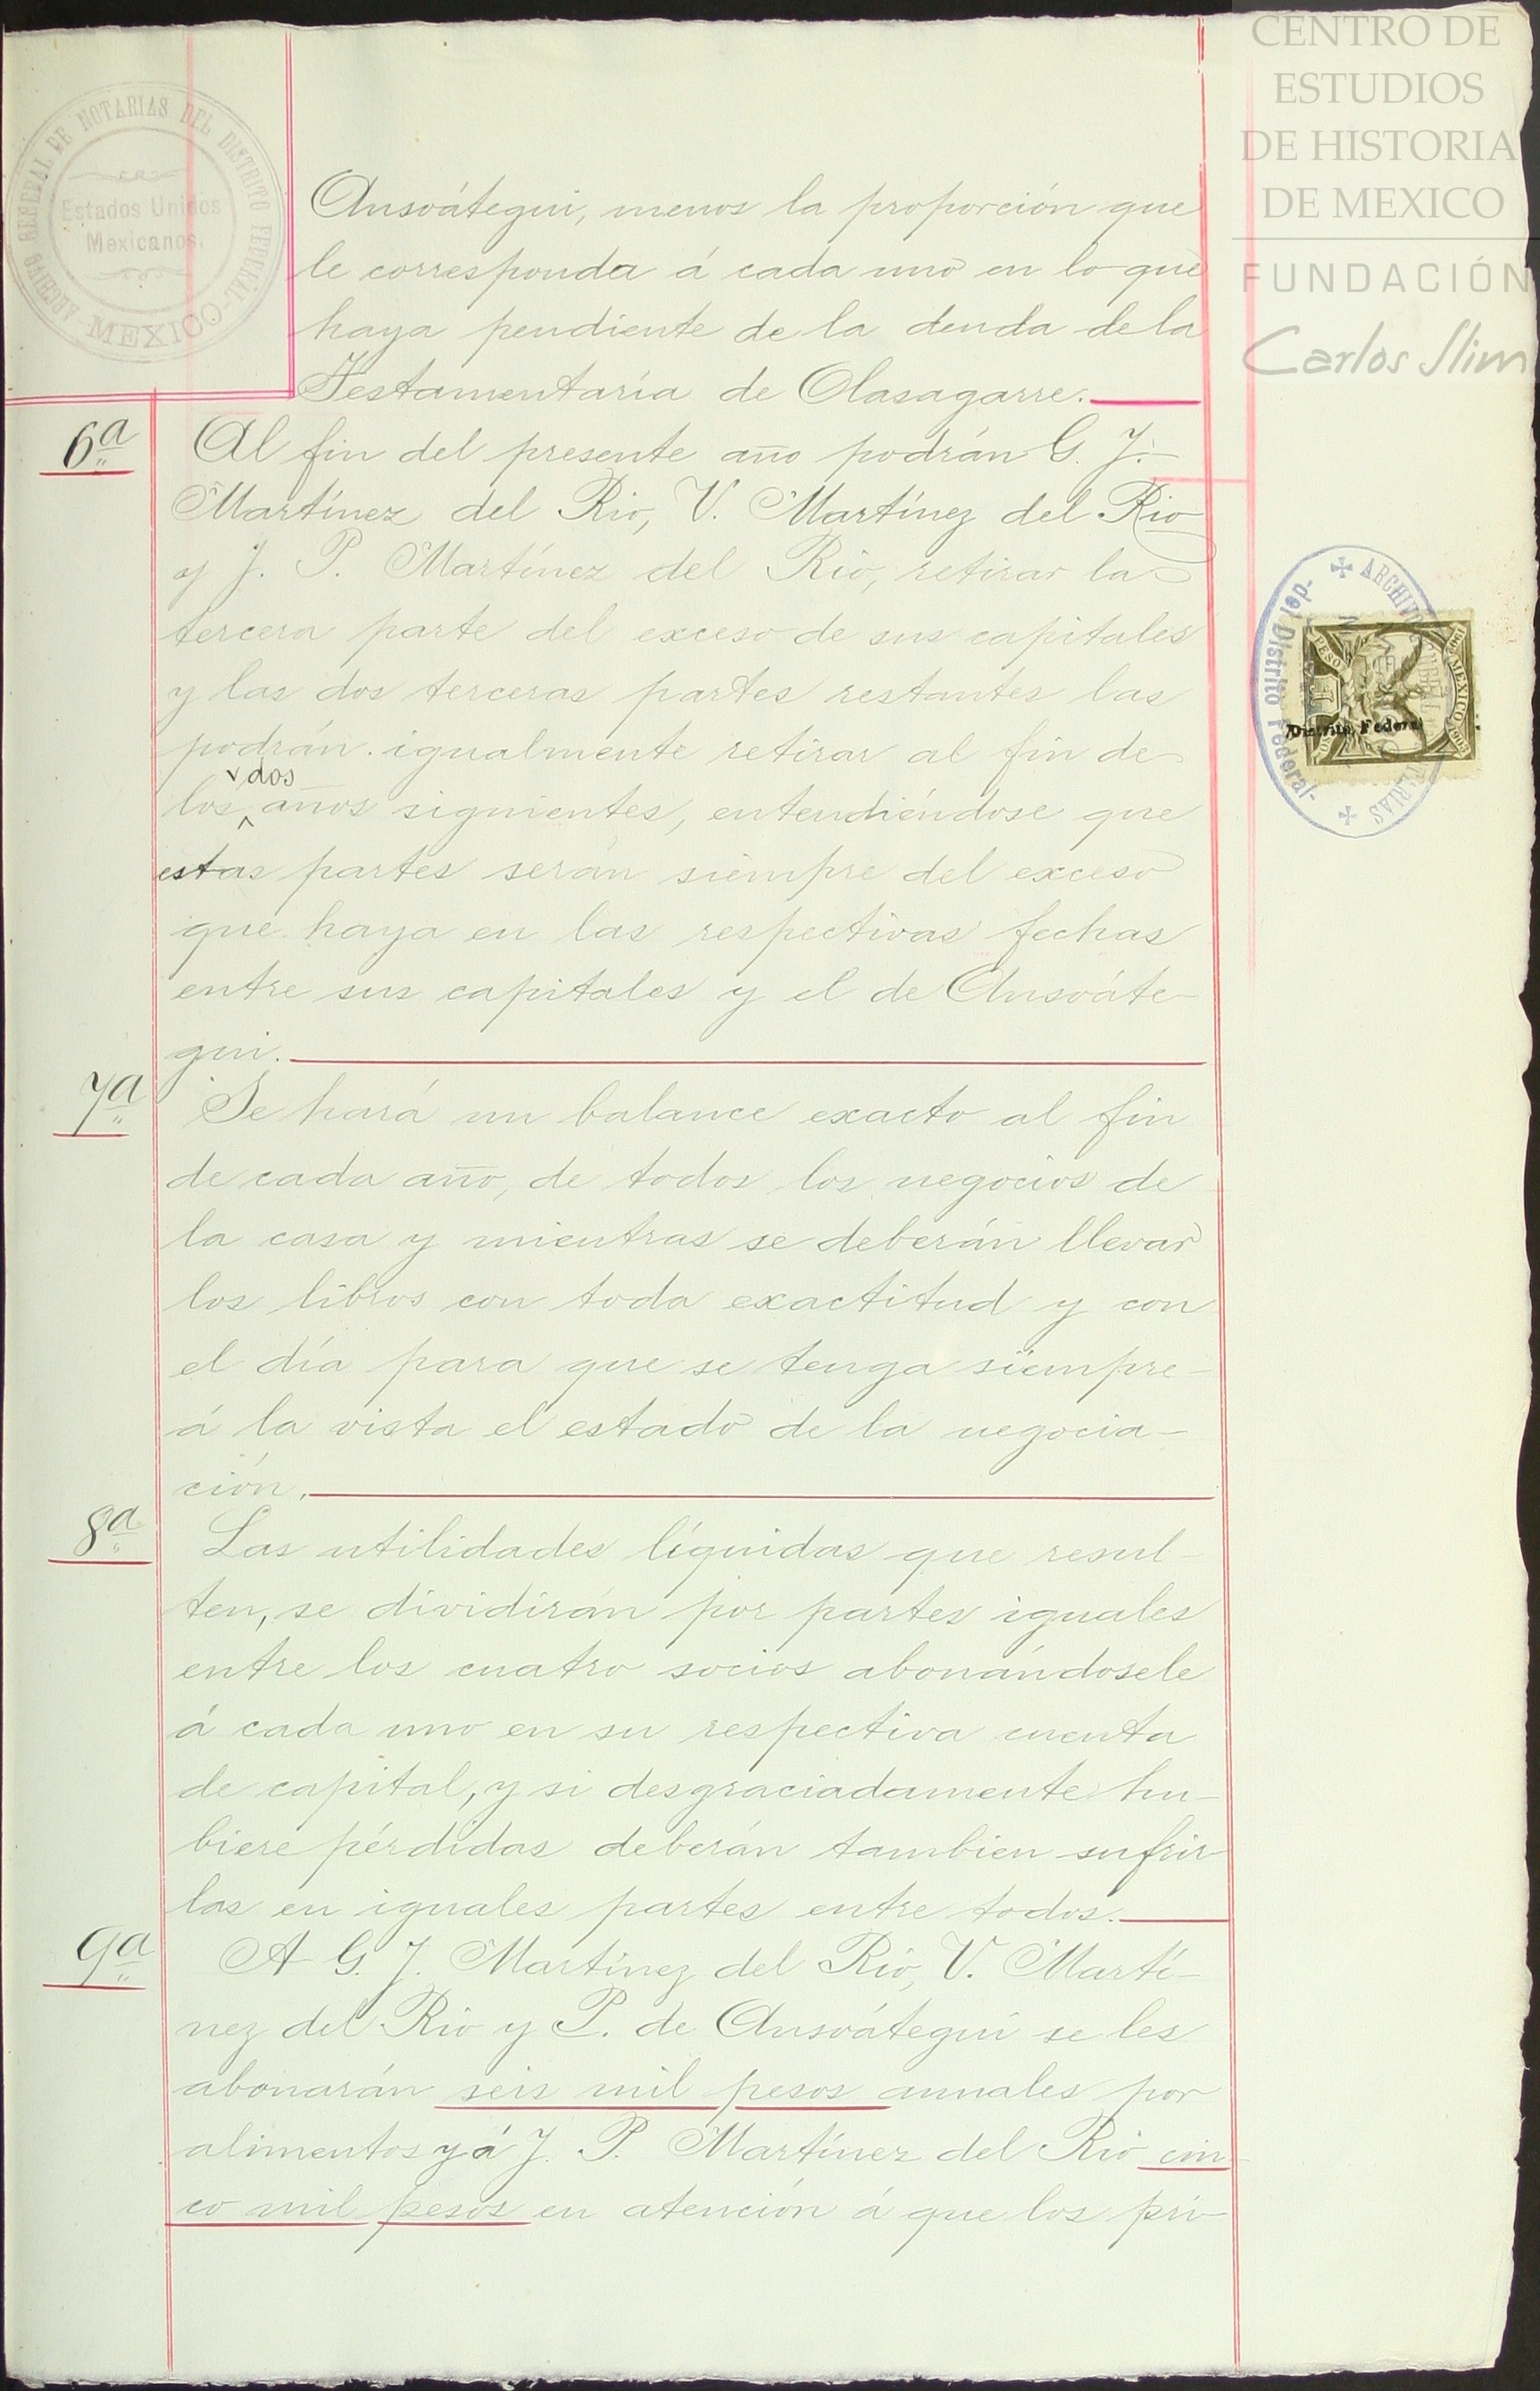 CENTRO DE
ESTUDIOS
DE HISTORIA
DE MEXICO
FUNDACIÓN
Carlos Slim
ARCHIVO GENERAL DE NOTARIAS DEL DISTRITO FEDERAL
Estados Unidos
Mexicanos.
MEXICO
Ansoátegui, menos la proporción que
le corresponda á cada uno en lo que
haya pendiente de la deuda de la
Testamentaría de Olasagarre.
6ª
Al fin del presente año podrán G. J.
Martínez del Rio, V. Martínez del Rio
y J. P. Martínez del Rio, retirar la
tercera parte del exceso de sus capitales
y las dos terceras partes restantes las
podrán igualmente retirar al fin de
dos
los años siguientes, entendiéndose que
estas partes serán siempre del exceso
que haya en las respectivas fechas
entre sus capitales y el de Ansoáte-
gui.
7ª
Se hará un balance exacto al fin
de cada año, de todos los negocios de
la casa y mientras se deberán llevar
los libros con toda exactitud y con
el día para que se tenga siempre
á la vista el estado de la negocia-
ción.
8ª
Las utilidades líquidas que resul-
ten, se dividirán por partes iguales
entre los cuatro socios abonándosele
á cada uno en su respectiva cuenta
de capital, y si desgraciadamente hu-
biere pérdidas deberán tambien sufrir
las en iguales partes entre todos.
9ª
A G. J. Martínez del Rio, V. Martí-
nez del Rio y P. de Ansoátegui se les
abonarán seis mil pesos anuales por
alimentos y á J. P. Martínez del Rio cin
co mil pesos en atención á que los pri-
ARCHIVO
del Distrito Federal
PESO
MEXICO
Distrito Federal